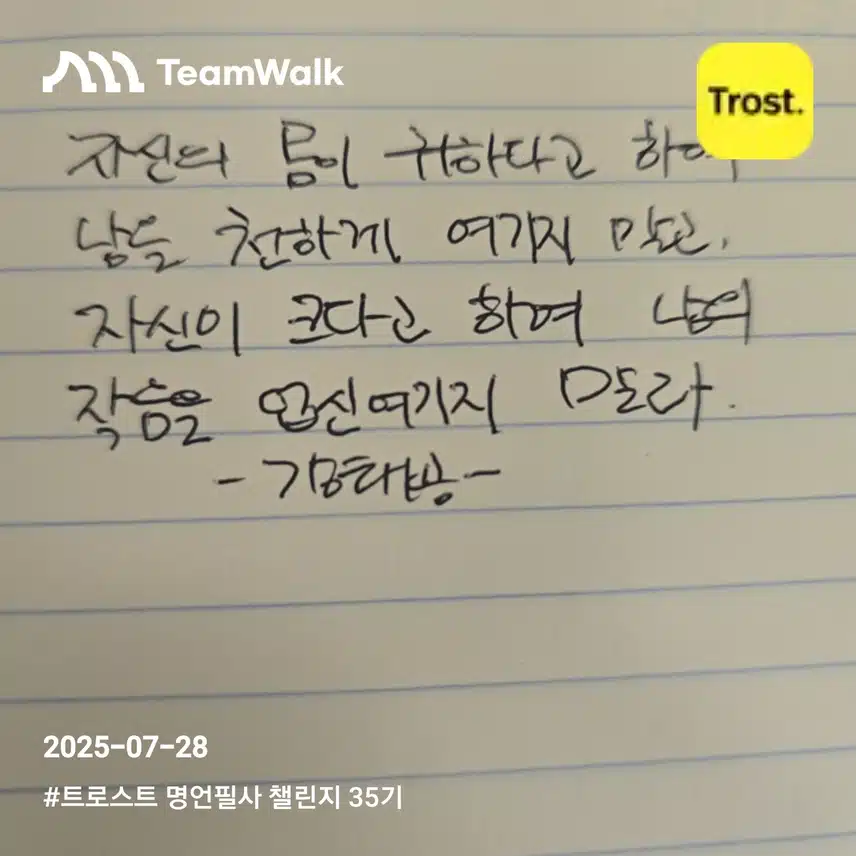 TeamWalk
Trost.
자신의 몸이 귀하다고 하여
남을 천하게 여기지 말고.
자신이 크다고 하여 남의
작음을 업신여기지 말라.
2025-07-28
#트로스트 명언필사 챌린지 35기